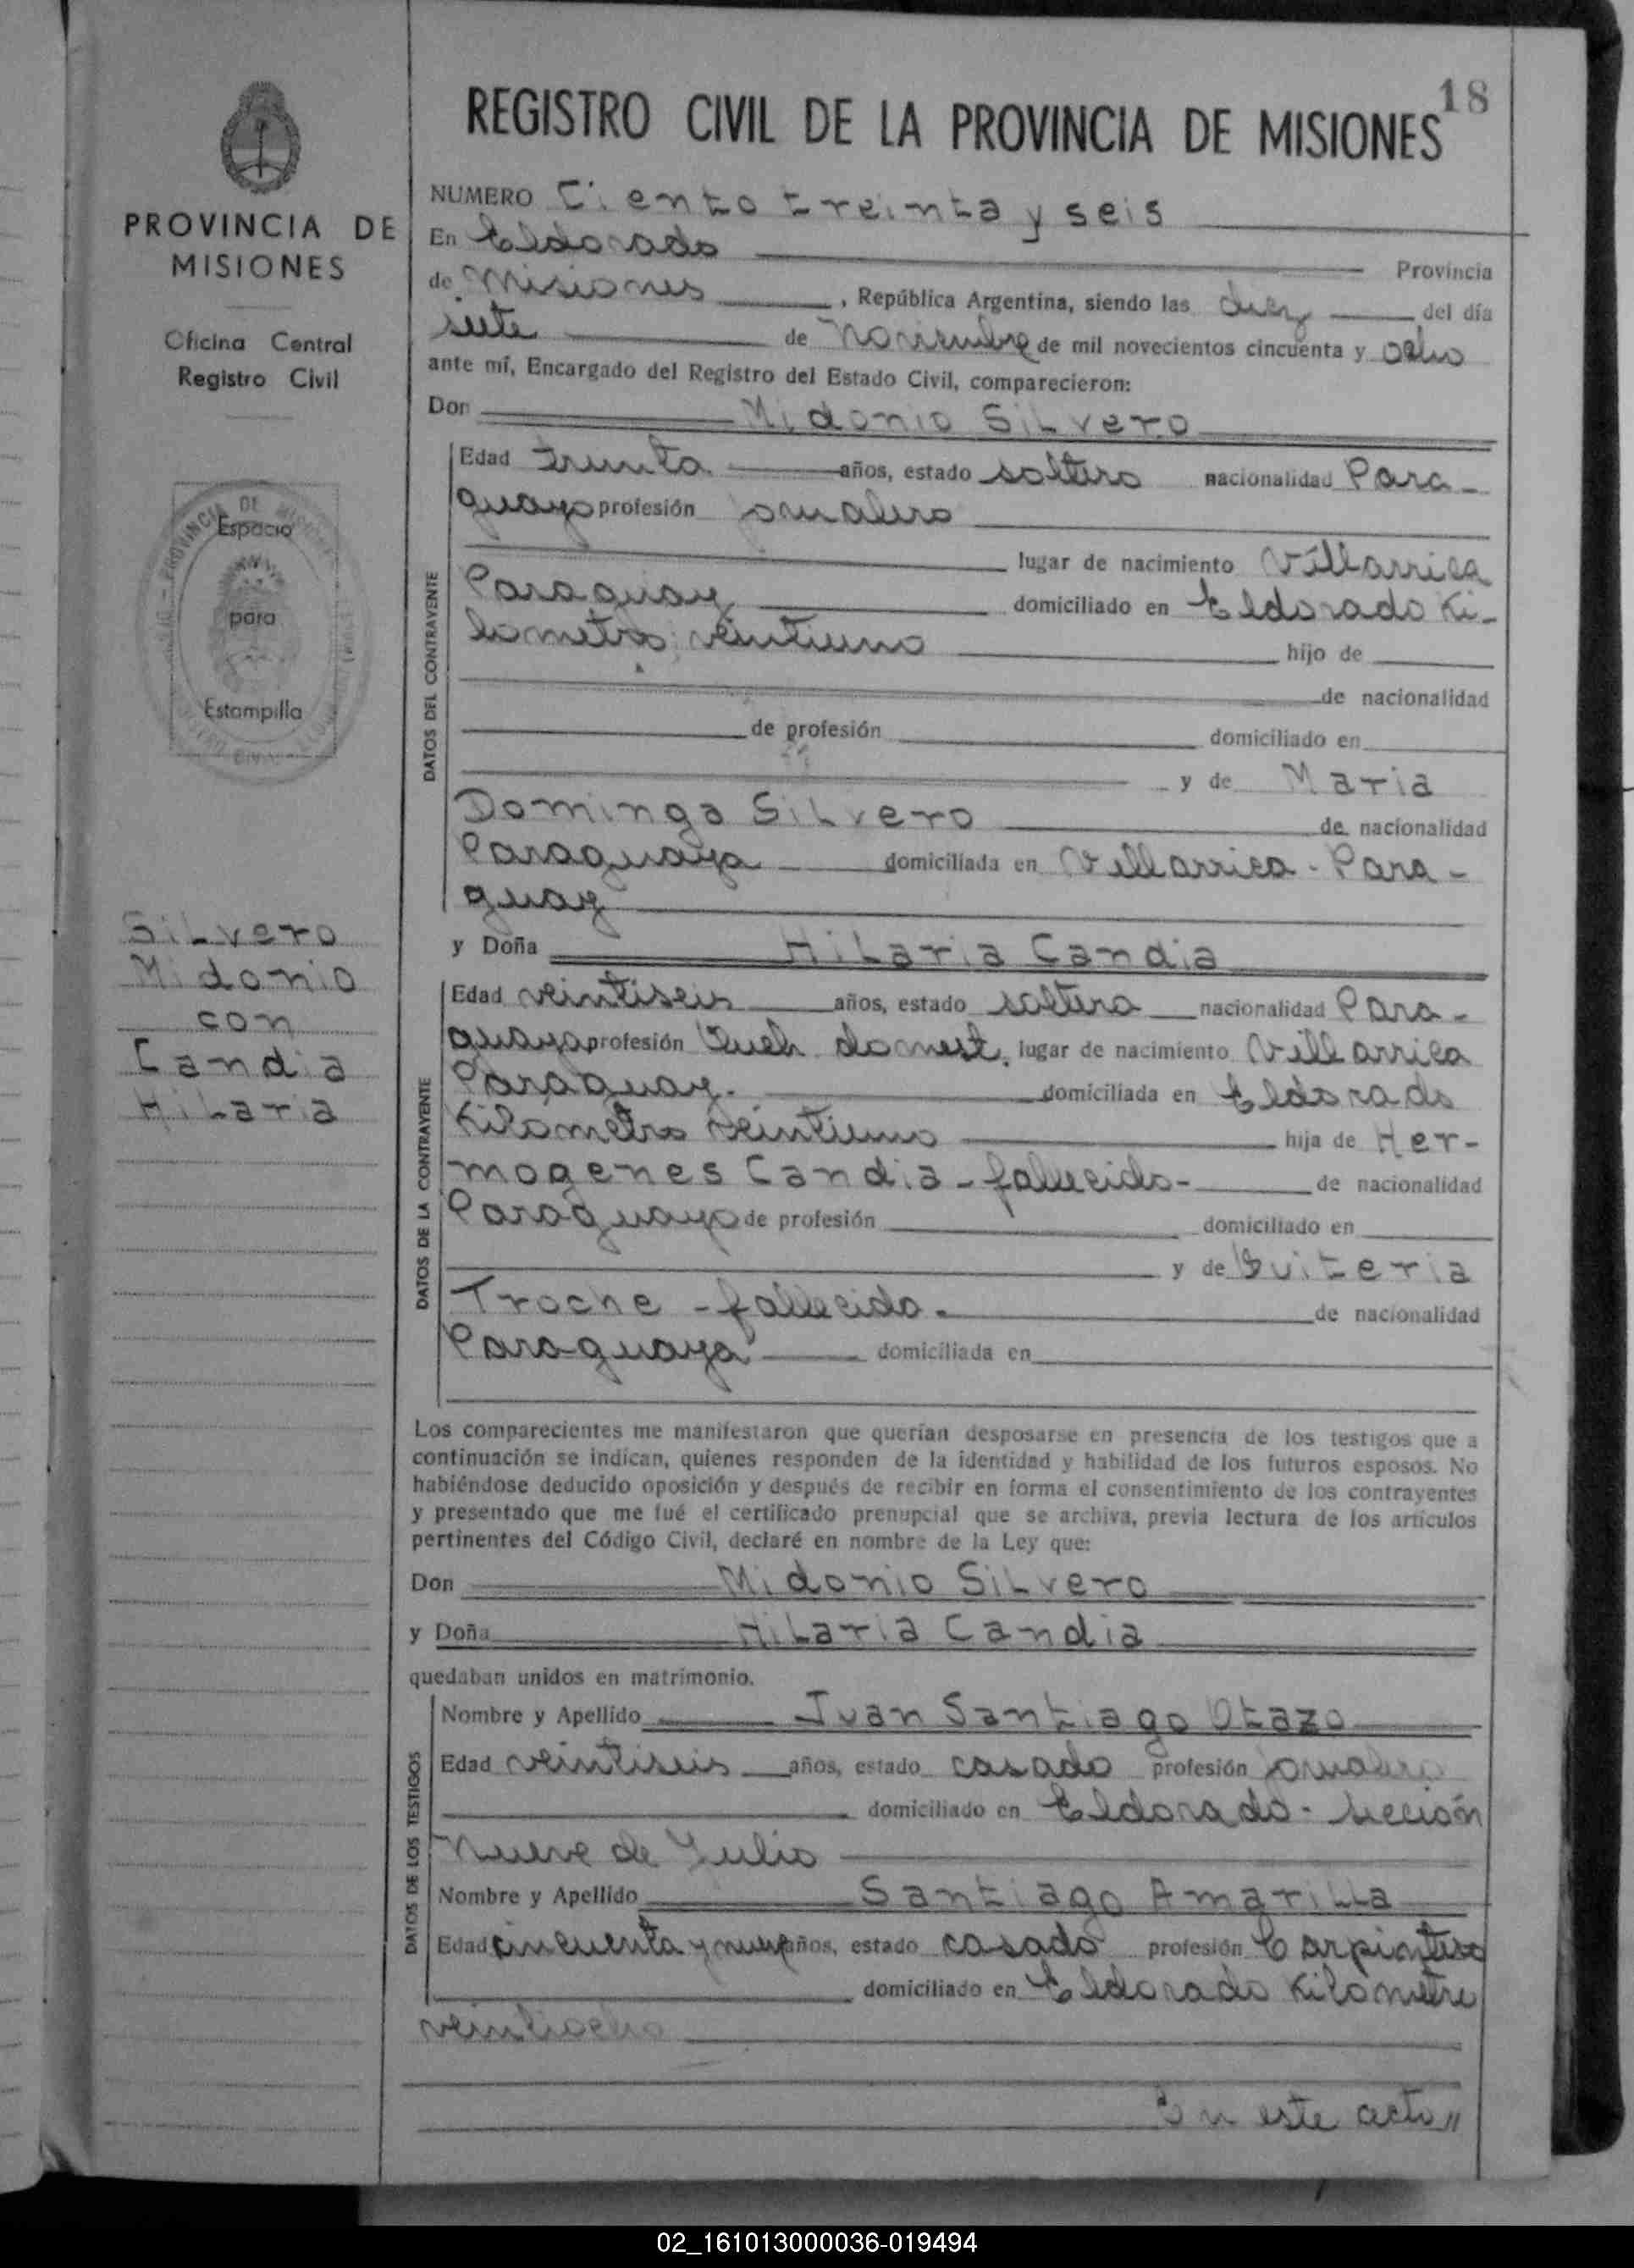 18
REGISTRO CIVIL DE LA PROVINCIA DE MISIONES
PROVINCIA DE
MISIONES
Oficina Central
Registro Civil
Espacio
para
Estampilla
Silvero
Midonio
con
Candia
Hilaria
NUMERO Ciento treinta y seis
En Eldorado Provincia
de Misiones, República Argentina, siendo las diez del día
siete de Noviembre de mil novecientos cincuenta y ocho
ante mí, Encargado del Registro del Estado Civil, comparecieron:
Don Midonio Silvero
DATOS DEL CONTRAYENTE
Edad treinta años, estado soltero nacionalidad Para-
guayo profesión jornalero
lugar de nacimiento Villarrica
Paraguay domiciliado en Eldorado Ki-
lometro veintiuno hijo de
de nacionalidad
de profesión domiciliado en
y de Maria
Dominga Silvero de nacionalidad
Paraguaya domiciliada en Villarrica - Para-
guay
y Doña Hilaria Candia
DATOS DE LA CONTRAYENTE
Edad veintiseis años, estado soltera nacionalidad Para-
guaya profesión Queh. domest. lugar de nacimiento Villarrica
Paraguay. domiciliada en Eldorado
Kilometro veintiuno hija de Her-
mogenes Candia - fallecido - de nacionalidad
Paraguayo de profesión domiciliado en
y de Quiteria
Troche - fallecida - de nacionalidad
Paraguaya domiciliada en
Los comparecientes me manifestaron que querían desposarse en presencia de los testigos que a
continuación se indican, quienes responden de la identidad y habilidad de los futuros esposos. No
habiéndose deducido oposición y después de recibir en forma el consentimiento de los contrayentes
y presentado que me fué el certificado prenupcial que se archiva, previa lectura de los artículos
pertinentes del Código Civil, declaré en nombre de la Ley que:
Don Midonio Silvero
y Doña Hilaria Candia
quedaban unidos en matrimonio.
DATOS DE LOS TESTIGOS
Nombre y Apellido Juan Santiago Otazo
Edad veintiseis años, estado casado profesión jornalero
domiciliado en Eldorado - sección
Nueve de Julio
Nombre y Apellido Santiago Amarilla
Edad cincuenta y nueve años, estado casado profesión Carpintero
domiciliado en Eldorado Kilometro
veintiocho
En este acto //
02_161013000036-019494